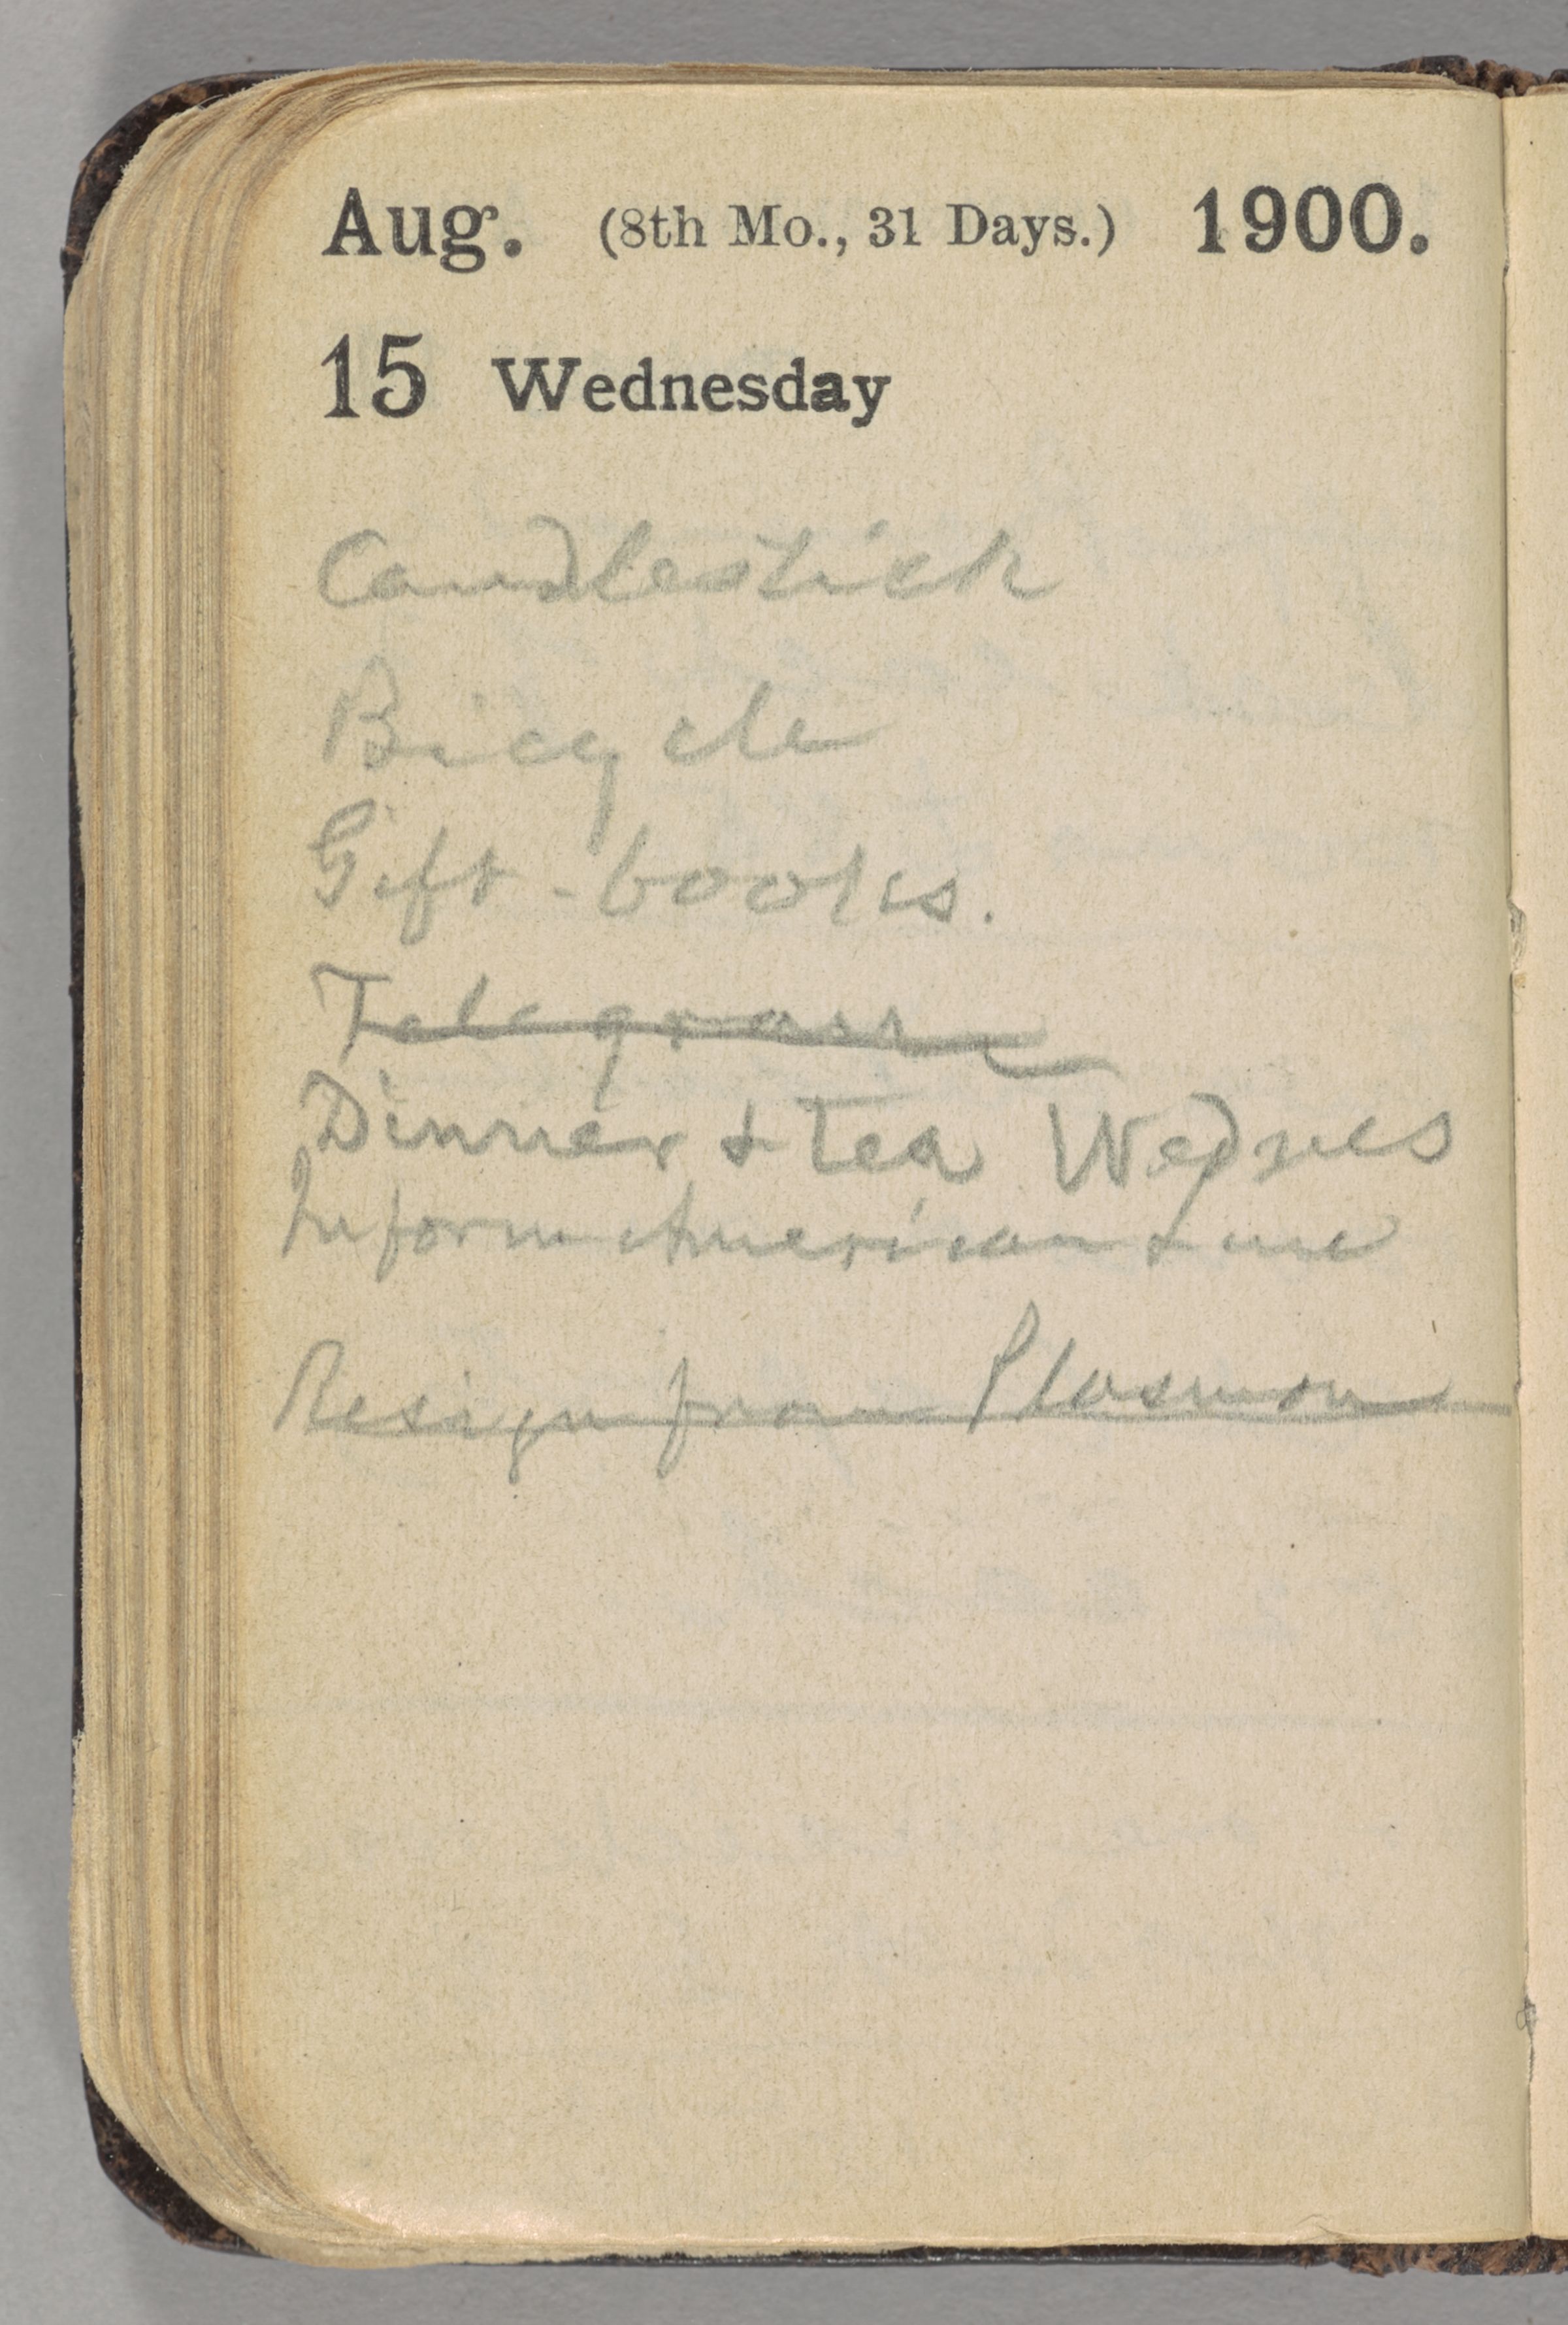 Aug. (8th Mo., 31 Days.) 1900.
15 Wednesday
Candlestick
Bicycle
Gift-books.
Telegrams
Dinner & tea Wednes
Inform American & me
Resign from Plasmon